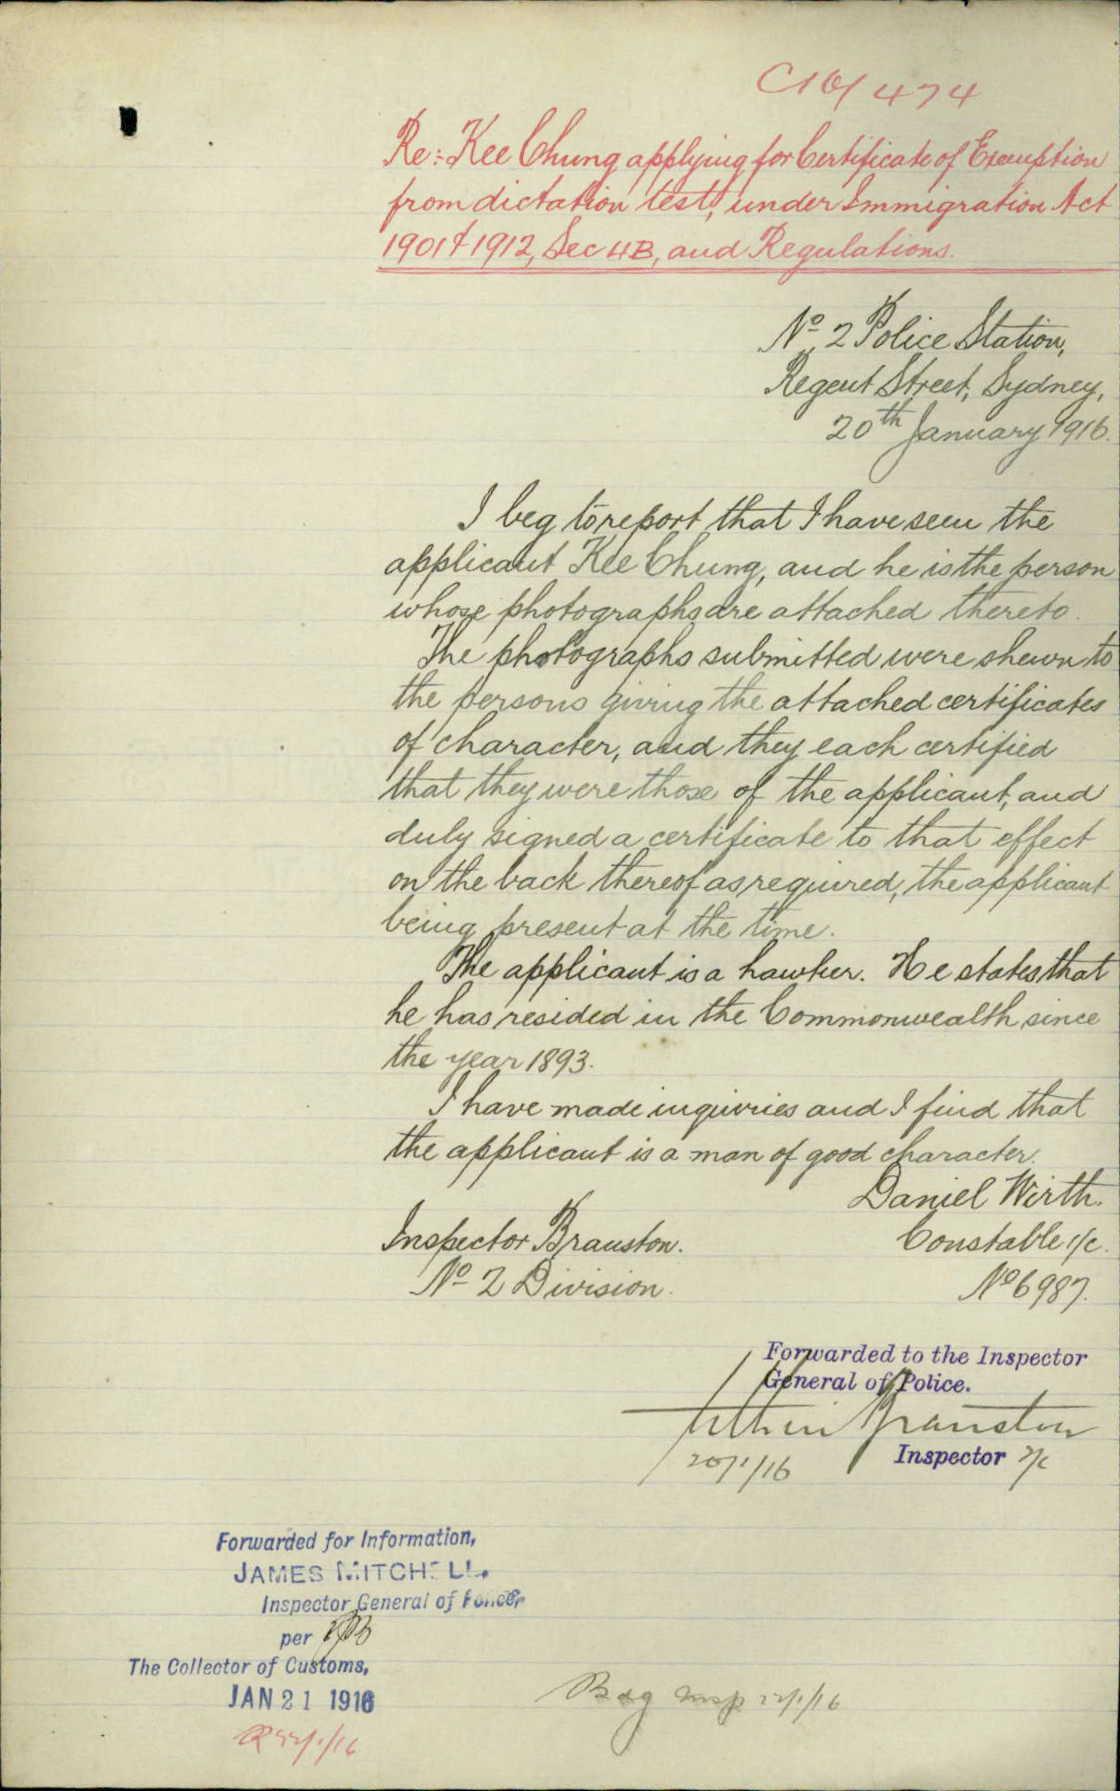 C16/474
Re:- Kee Chung applying for Certificate of Exemption
from dictation test, under Immigration Act
1901 & 1912, Sec 4B, and Regulations.
No 2 Police Station,
Regent Street, Sydney,
20th January 1916.
I beg to report that I have seen the
applicant Kee Chung, and he is the person
whose photographs are attached thereto.
The photographs submitted were shewn to
the persons giving the attached certificates
of character, and they each certified
that they were those of the applicant, and
duly signed a certificate to that effect
on the back thereof as required, the applicant
being present at the time.
The applicant is a hawker. He states that
he has resided in the Commonwealth since
the year 1893.
I have made inquiries and I find that
the applicant is a man of good character.
Daniel Wirth.
Inspector Branston. Constable 1/c
No 2 Division. No 6987.
Forwarded to the Inspector
General of Police.
Branston
20/1/16 Inspector
Forwarded for Information,
JAMES MITCHELL.
Inspector General of Police,
per
The Collector of Customs,
JAN 21 1916
22/1/16
Insp 22/1/16